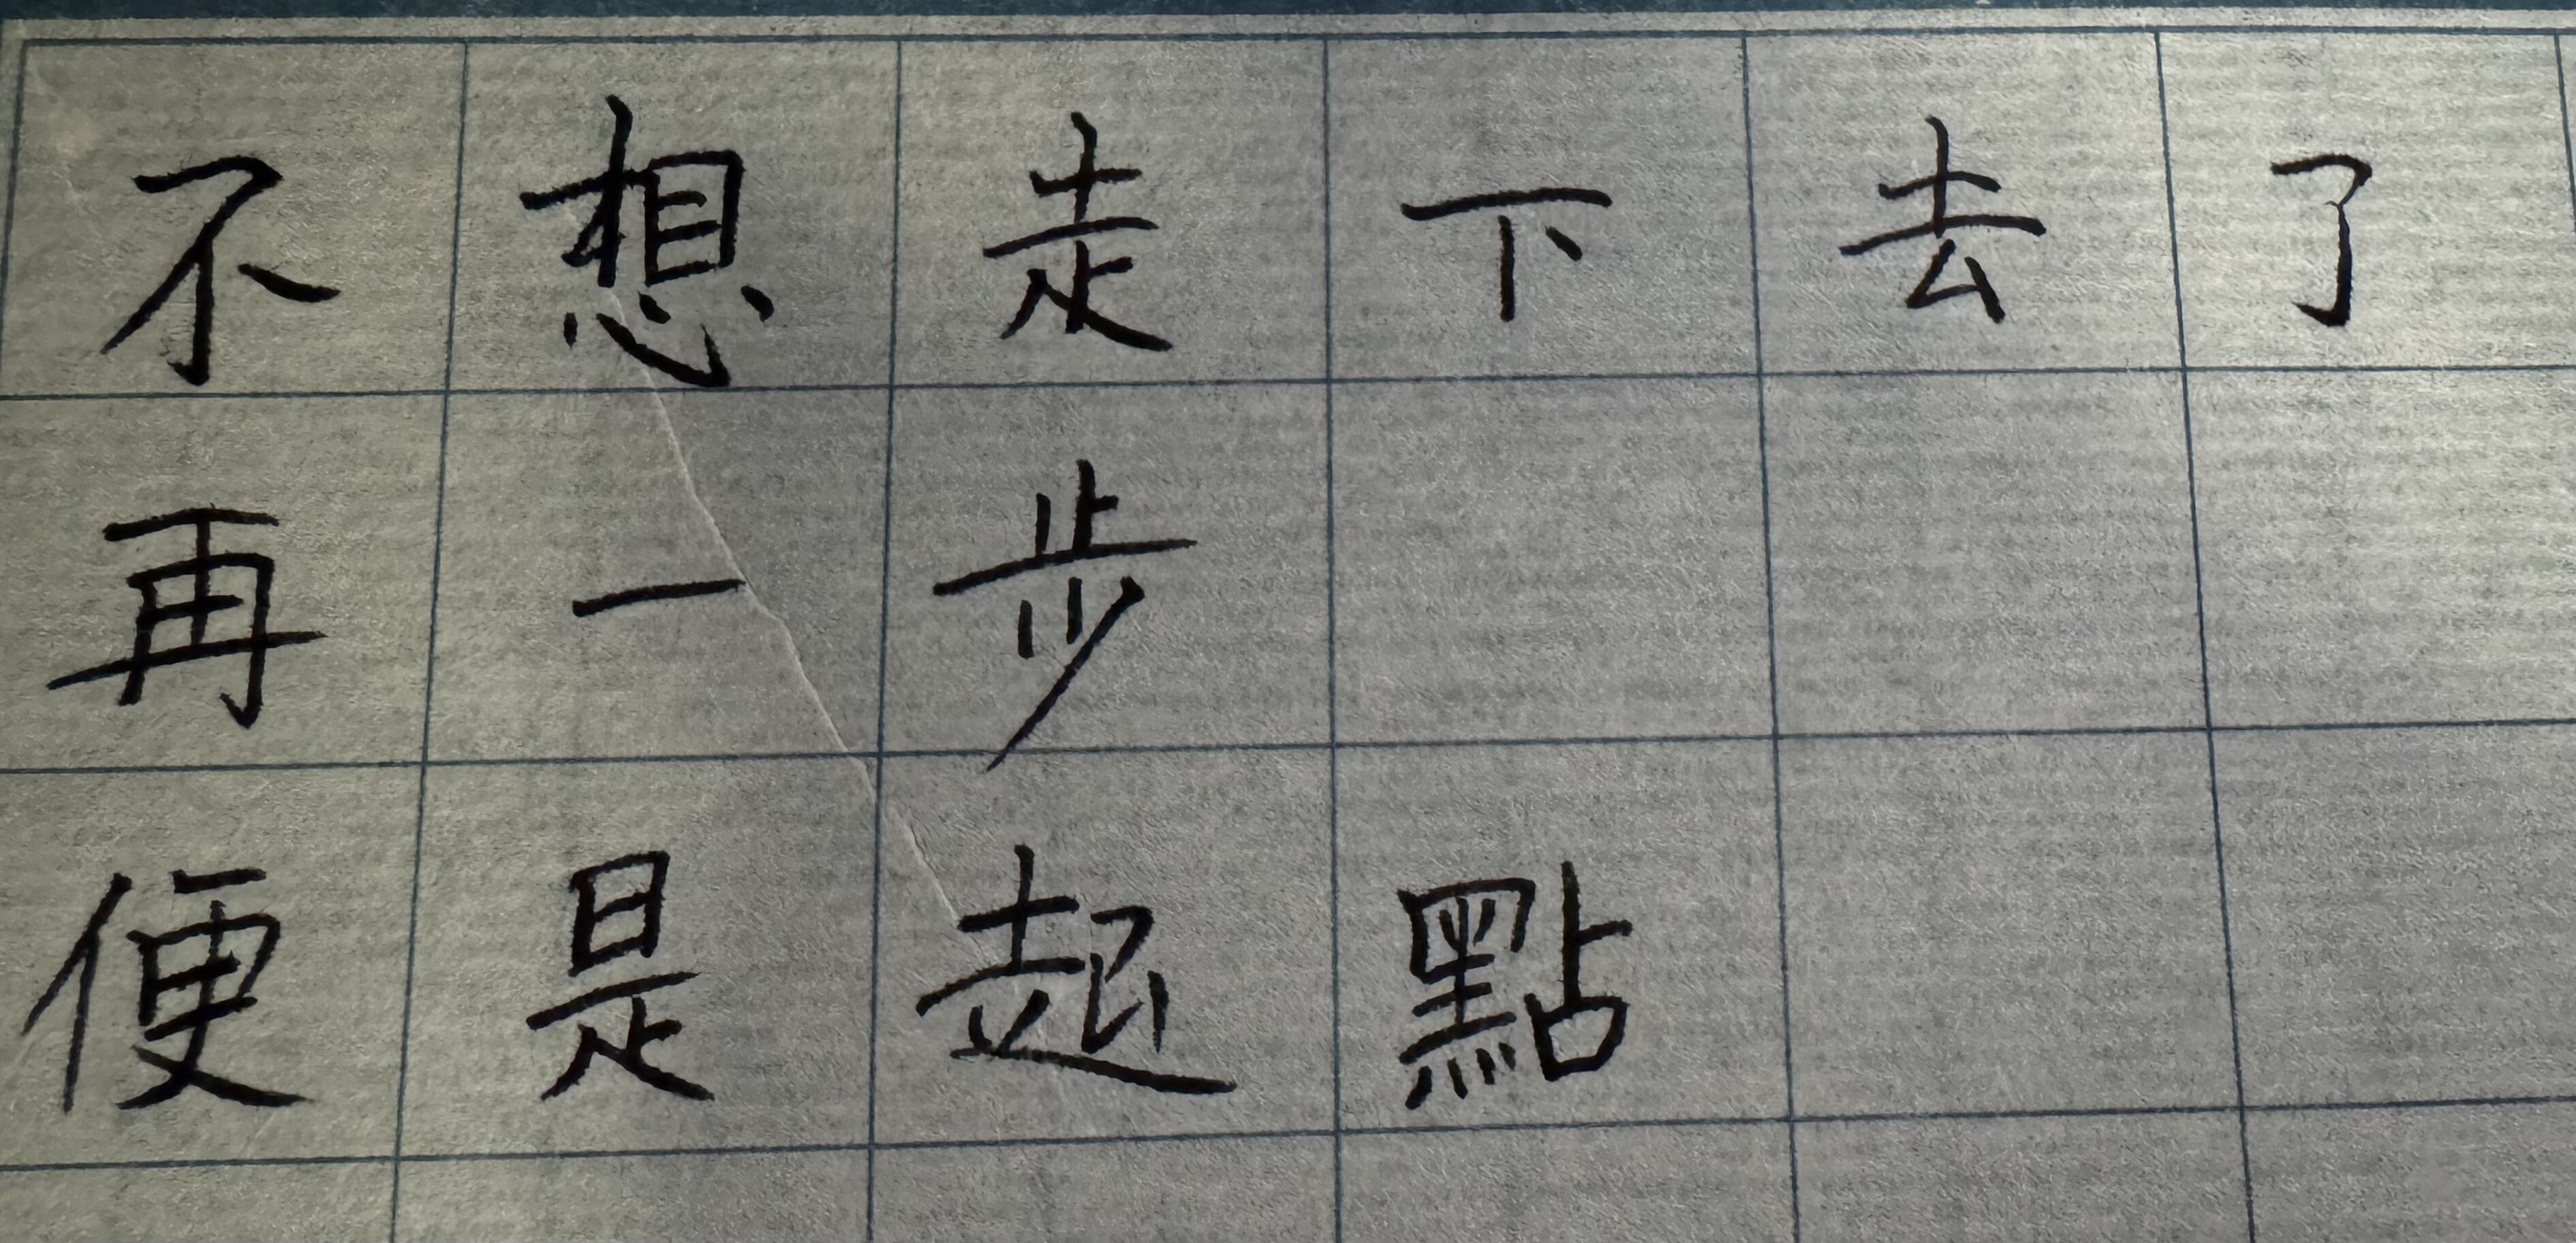 不想走下去了
再一步
便是起點